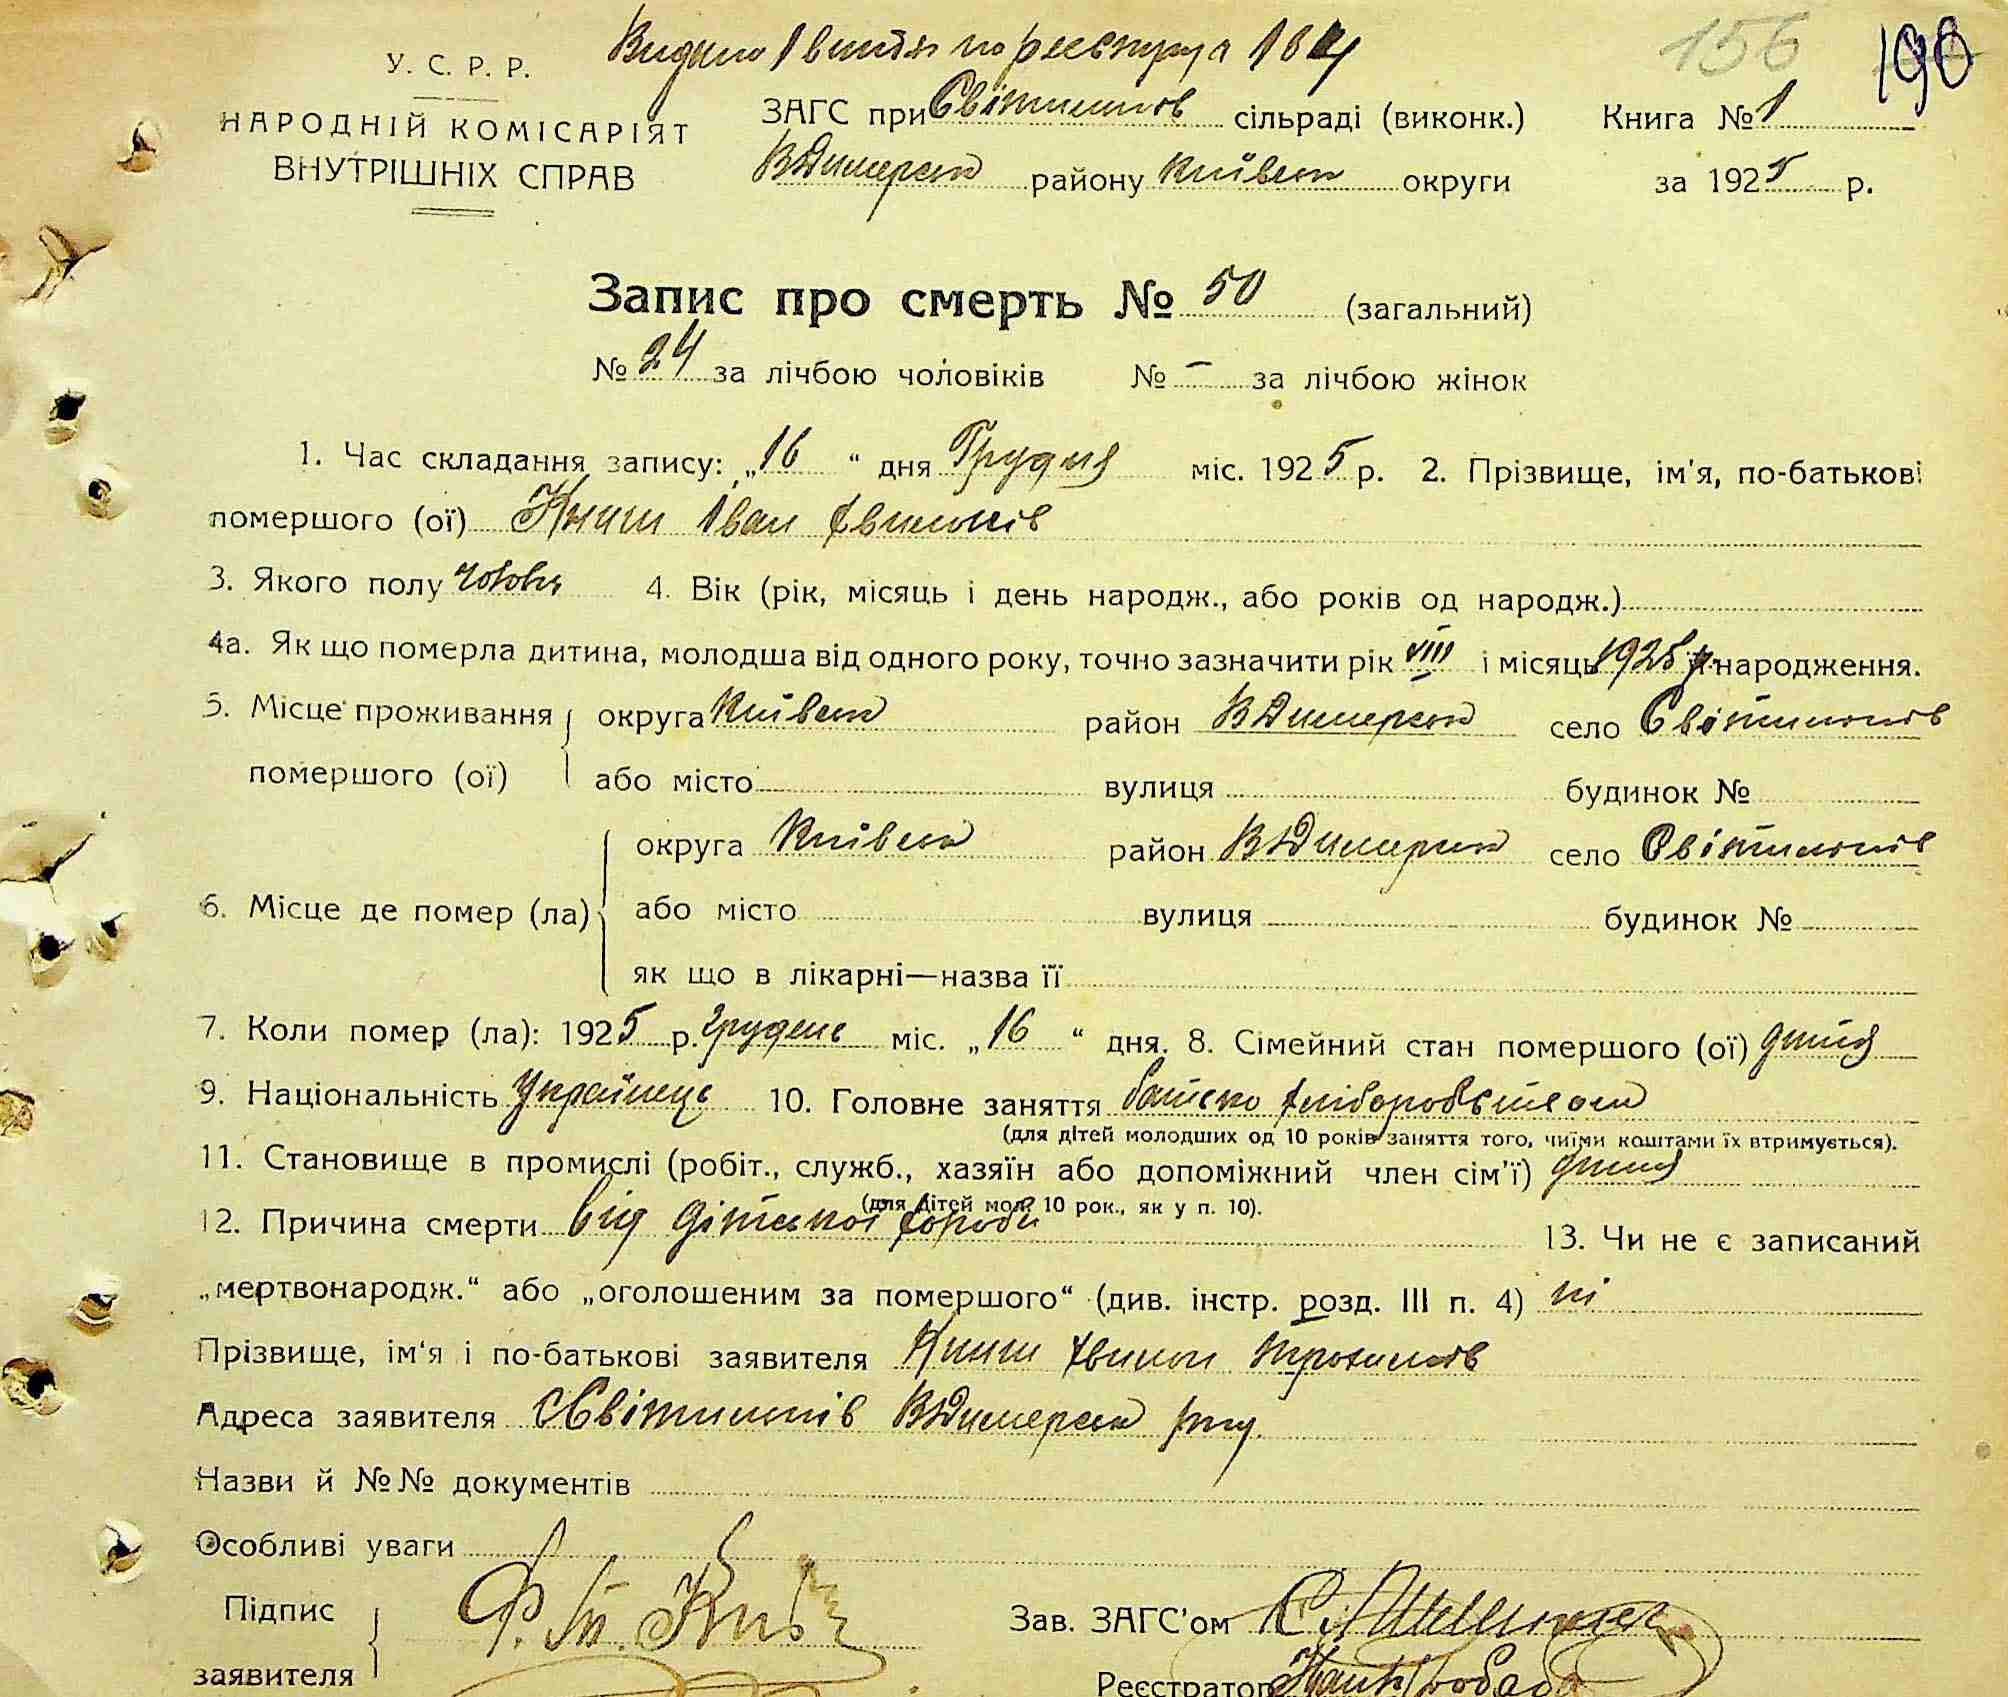 Видано 1 витяг по реєстру за 184
156 190
У. С. Р. Р.
НАРОДНІЙ КОМІСАРІЯТ
ВНУТРІШНІХ СПРАВ
ЗАГС при Світильнів сільраді (виконк.) Книга № 1
В-Димерськ району Київськ округи за 1925 р.
Запис про смерть № 50 (загальний)
№ 24 за лічбою чоловіків № – за лічбою жінок
1. Час складання запису: „16“ дня Грудня міс. 1925 р. 2. Прізвище, ім'я, по-батькові
помершого (ої) Книш Іван
3. Якого полу 4. Вік (рік, місяць і день народж., або років од народж.)
4а. Як що померла дитина, молодша від одного року, точно зазначити рік VIII і місяць 1925 р. її народження.
5. Місце проживання округа Київськ район В-Димерськ село Світильнів
помершого (ої) або місто вулиця будинок №
округа Київськ район В-Димерськ село Світильнів
6. Місце де помер (ла) або місто вулиця будинок №
як що в лікарні—назва її
7. Коли помер (ла): 1925 р. грудень міс. „16“ дня. 8. Сімейний стан помершого (ої) дитя
9. Національність Українець 10. Головне заняття батько хліборобством
(для дітей молодших од 10 років заняття того, чиїми коштами їх втримується).
11. Становище в промислі (робіт., служб., хазяїн або допоміжний член сім'ї) дитя
(для дітей мол. 10 рок., як у п. 10).
12. Причина смерти від дітської хороби 13. Чи не є записаний
„мертвонародж.“ або „оголошеним за помершого“ (див. інстр. розд. III п. 4) ні
Прізвище, ім'я і по-батькові заявителя Книш
Адреса заявителя с Світильнів В-Димерськ р-ну.
Назви й №№ документів
Особливі уваги
Підпис Зав. ЗАГС'ом
заявителя Реєстратор